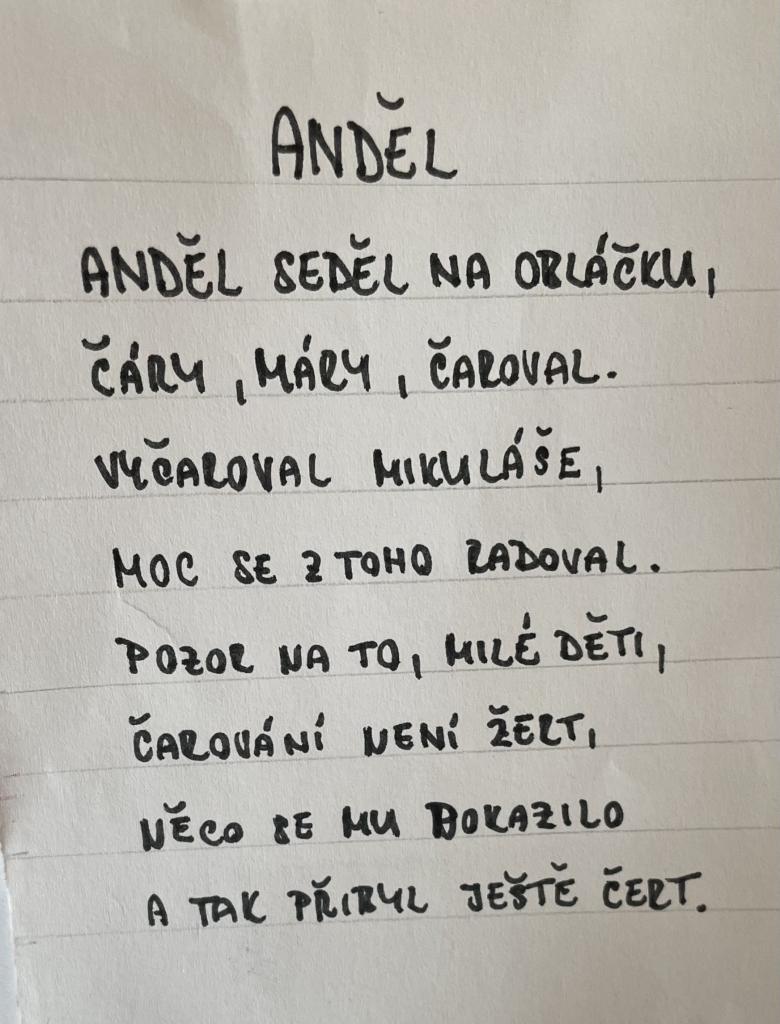 ANDĚL
ANDĚL SEDĚL NA OBLÁČKU,
ČÁRY, MÁRY, ČAROVAL.
VYČAROVAL MIKULÁŠE,
MOC SE Z TOHO RADOVAL.
POZOR NA TO, MILÉ DĚTI,
ČAROVÁNÍ NENÍ ŽERT,
NĚCO SE MU POKAZILO
A TAK PŘIBYL JEŠTĚ ČERT.